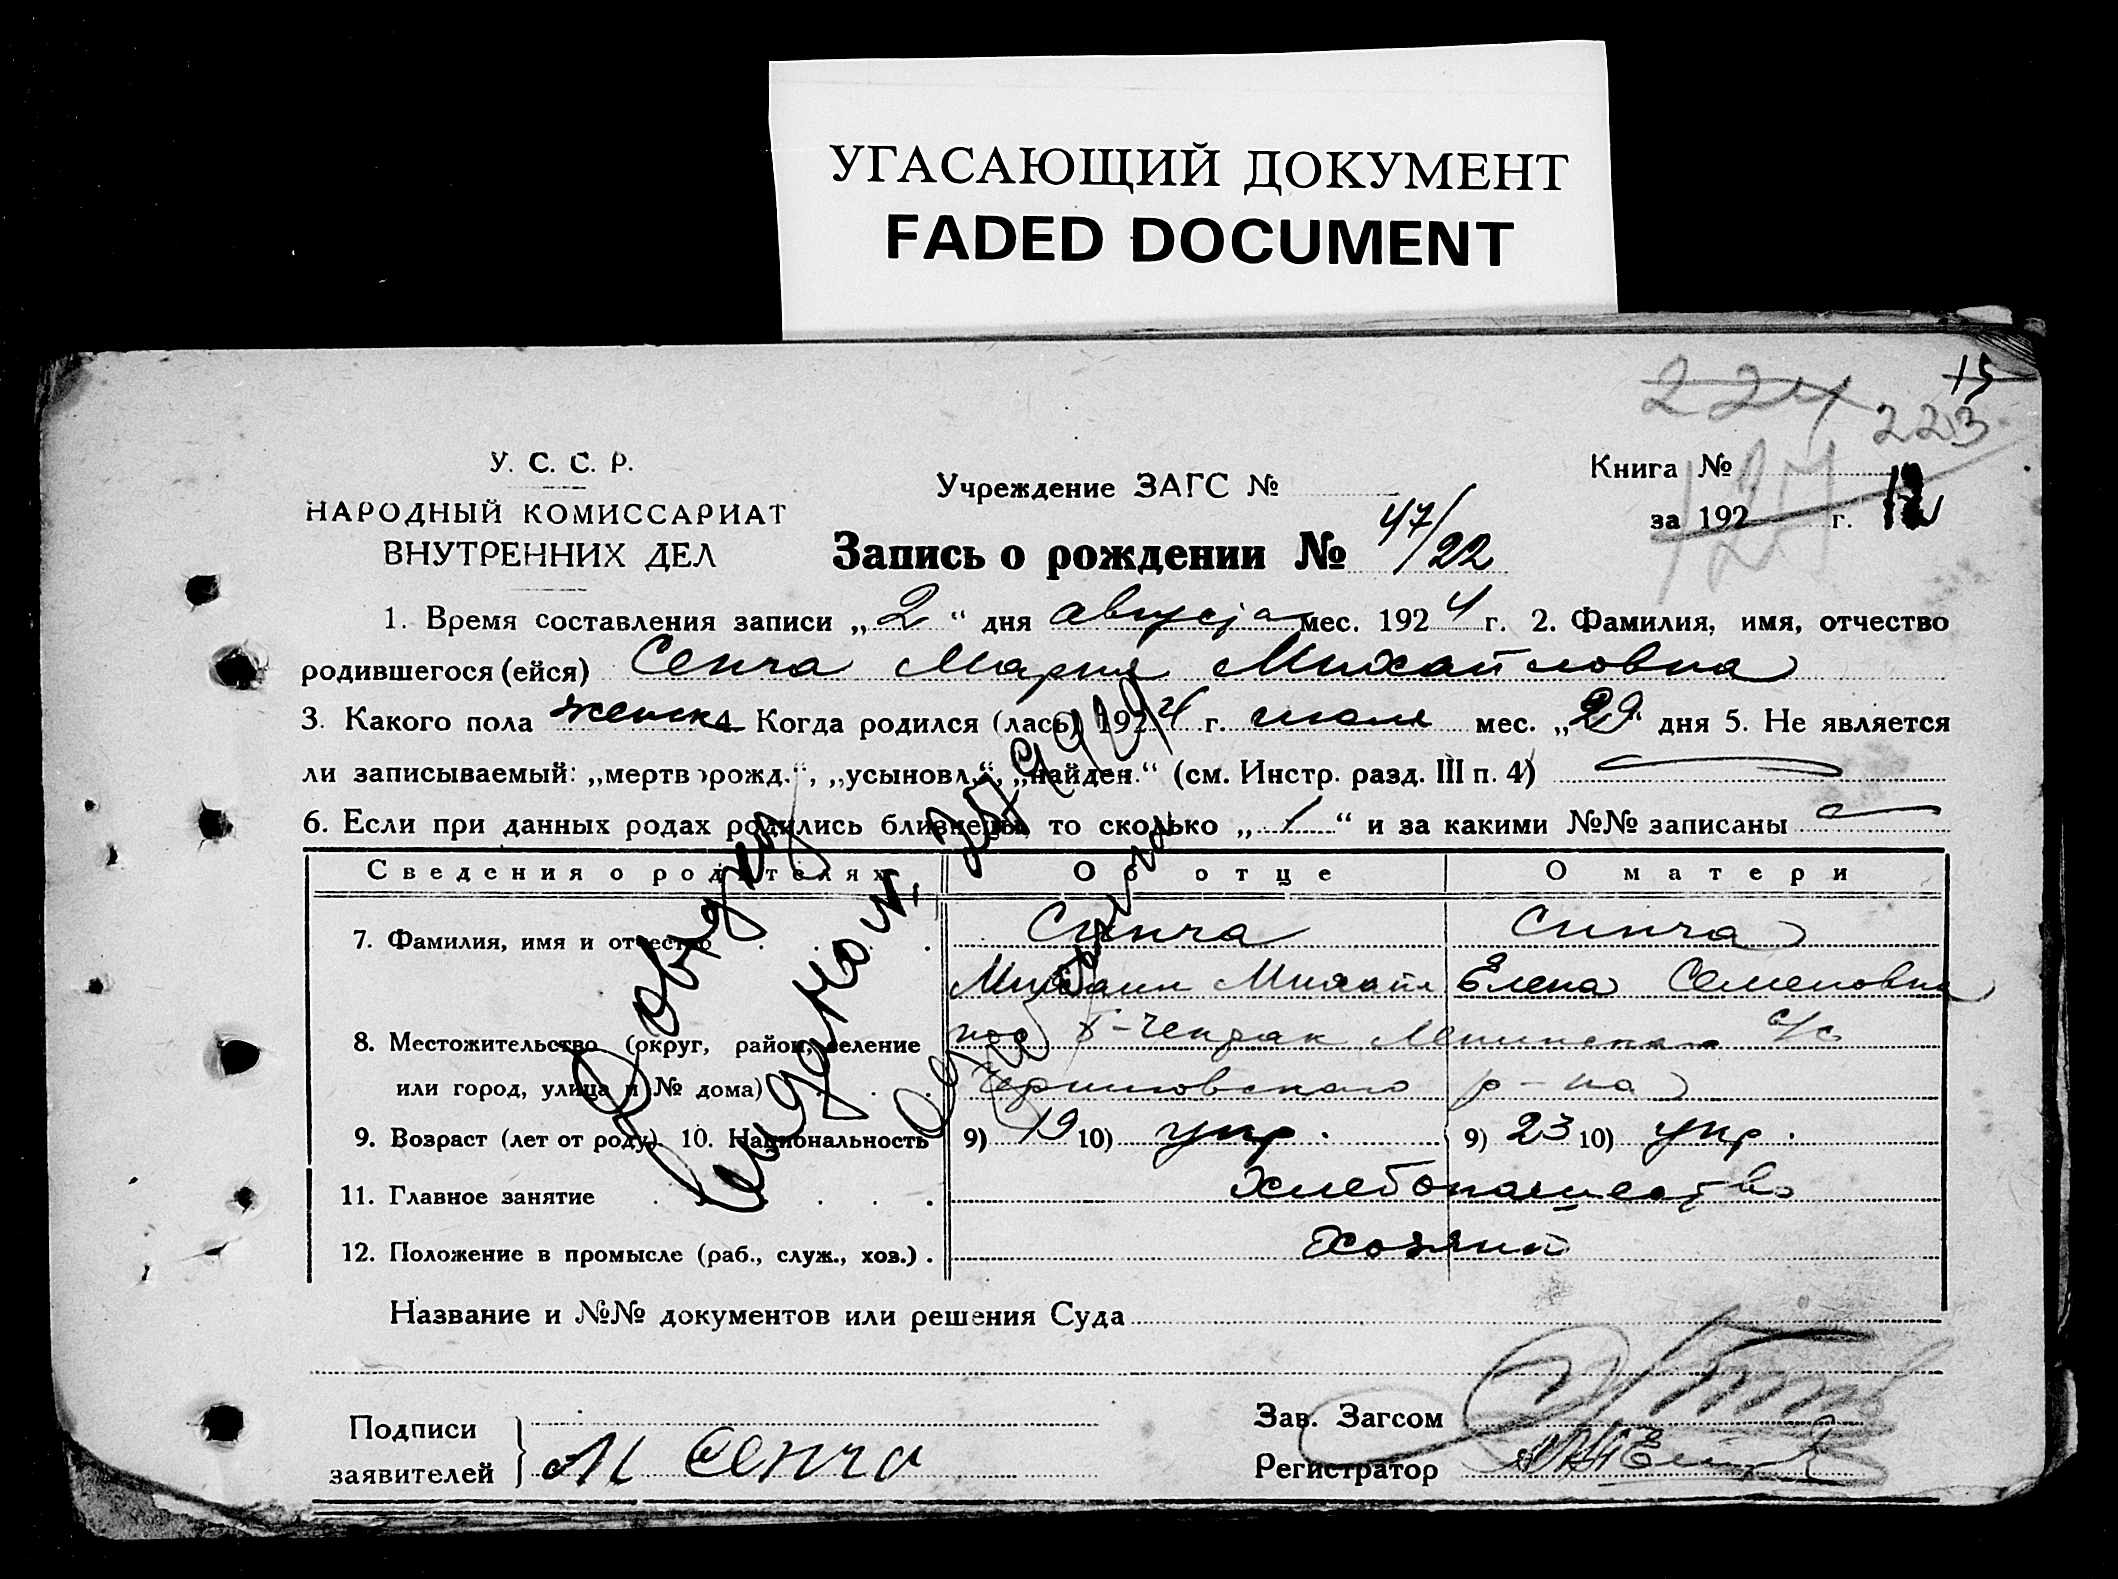 УГАСАЮЩИЙ ДОКУМЕНТ
FADED DOCUMENT
15
224
223
У. С. С. Р.
НАРОДНЫЙ КОМИССАРИАТ
ВНУТРЕННИХ ДЕЛ
Учреждение ЗАГС №
Книга №
за 192 г. 12
Запись о рождении № 47/22
1. Время составления записи „2“ дня августа мес. 1924 г. 2. Фамилия, имя, отчество
родившегося (ейся) Сенча Мария Михайловна
3. Какого пола женск 4. Когда родился (лась) 1924 г. июля мес. „29“ дня 5. Не является
ли записываемый: „мертворожд.“, „усыновл.“, „найден.“ (см. Инстр. разд. III п. 4)
6. Если при данных родах родились близнецы, то сколько „1“ и за какими №№ записаны
Сведения о родителях Об отце О матери
7. Фамилия, имя и отчество Синча Синча
Михаил Михайл Елена Семеновна
8. Местожительство (округ, район, селение пос Б-Чекрак с/с
или город, улица и № дома) р-на
9. Возраст (лет от роду). 10. Национальность 9) 19 10) укр. 9) 23 10) укр.
11. Главное занятие Хлебопашество
12. Положение в промысле (раб., служ., хоз.) Хозяин
Название и №№ документов или решения Суда
Подписи
заявителей М Сенча
Зав. Загсом
Регистратор